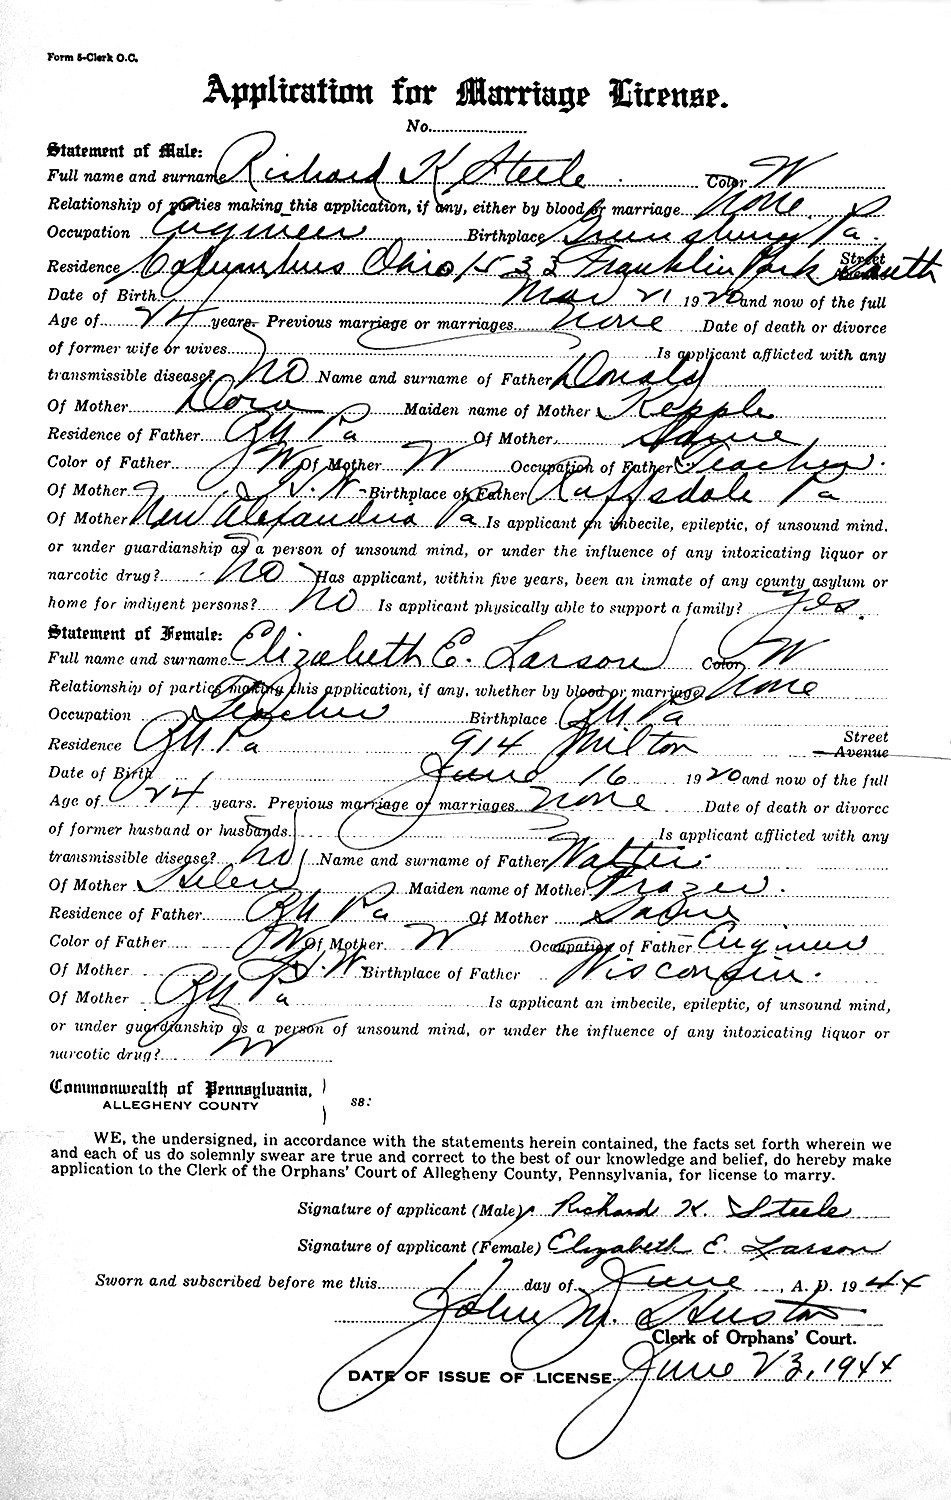 Form 5-Clerk O.C.
Application for Marriage License.
No.
Statement of Male:
Full name and surname Richard K Steele Color W
Relationship of parties making this application, if any, either by blood or marriage none
Occupation Engineer Birthplace Greensburg Pa.
Residence Columbus Ohio 1533 Franklin Park South Street Avenue
Date of Birth Mar 21 1920 and now of the full
Age of 24 years. Previous marriage or marriages none Date of death or divorce
of former wife or wives Is applicant afflicted with any
transmissible disease? No Name and surname of Father Donald
Of Mother Dora Maiden name of Mother Kepple
Residence of Father Pa Of Mother Same
Color of Father W Of Mother W Occupation of Father Teacher.
Of Mother H.W. Birthplace of Father Ruffsdale Pa
Of Mother New Alexandria Pa Is applicant an imbecile, epileptic, of unsound mind,
or under guardianship as a person of unsound mind, or under the influence of any intoxicating liquor or
narcotic drug? No Has applicant, within five years, been an inmate of any county asylum or
home for indigent persons? No Is applicant physically able to support a family? Yes.
Statement of Female:
Full name and surname Elizabeth E. Larson Color W
Relationship of parties making this application, if any, whether by blood or marriage none
Occupation Teacher Birthplace Pa
Residence Pa 914 Milton Street Avenue
Date of Birth June 16 1920 and now of the full
Age of 24 years. Previous marriage or marriages none Date of death or divorce
of former husband or husbands Is applicant afflicted with any
transmissible disease? No Name and surname of Father Walter
Of Mother Helen Maiden name of Mother Frazer.
Residence of Father Pa Of Mother Same
Color of Father W Of Mother W Occupation of Father Engineer
Of Mother H.W. Birthplace of Father Wisconsin.
Of Mother Pa Is applicant an imbecile, epileptic, of unsound mind,
or under guardianship as a person of unsound mind, or under the influence of any intoxicating liquor or
narcotic drug? no
Commonwealth of Pennsylvania,
ALLEGHENY COUNTY ss:
WE, the undersigned, in accordance with the statements herein contained, the facts set forth wherein we
and each of us do solemnly swear are true and correct to the best of our knowledge and belief, do hereby make
application to the Clerk of the Orphans' Court of Allegheny County, Pennsylvania, for license to marry.
Signature of applicant (Male) Richard K. Steele
Signature of applicant (Female) Elizabeth E. Larson
Sworn and subscribed before me this 17 day of June, A. D. 1944
John M. Huston
Clerk of Orphans' Court.
DATE OF ISSUE OF LICENSE June 23, 1944